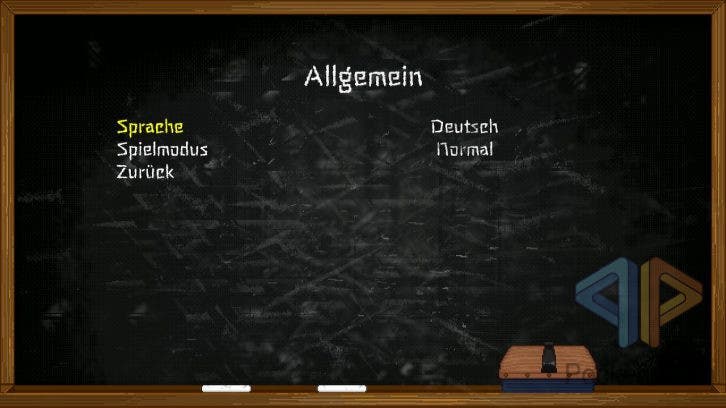 Allgemein
Sprache Deutsch
Spielmodus Normal
Zurück